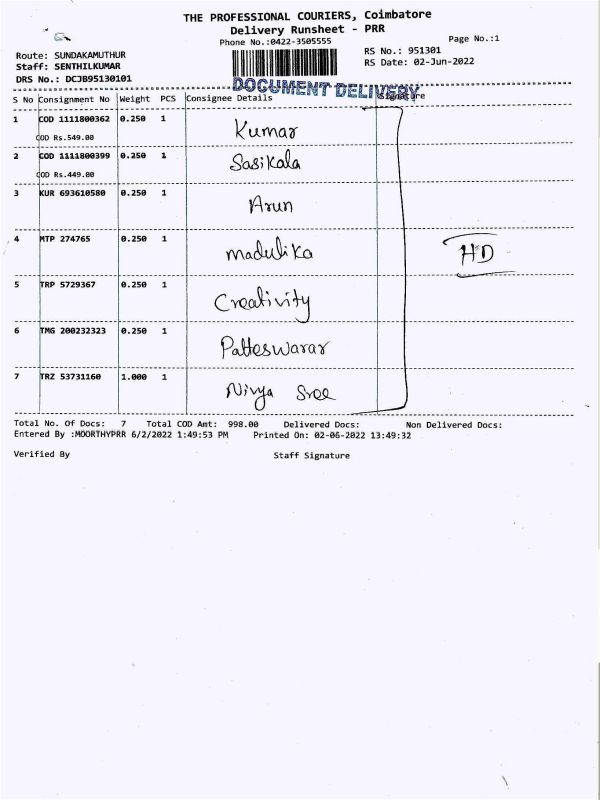 THE PROFESSIONAL COURIERS, Coimbatore
Delivery Runsheet - PRR
Phone No.:0422-3505555
Page No.:1
Route: SUNDAKAMUTHUR
RS No.: 951301
Staff: SENTHILKUMAR
RS Date: 02-Jun-2022
DRS No.: DCJB95130101
DOCUMENT DELIVERY
S No Consignment No Weight PCS Consignee Details Signature
1 COD 1111800362 0.250 1 Kumar
COD Rs.549.00
2 COD 1111800399 0.250 1 Sasikala
COD Rs.449.00
3 KUR 693610580 0.250 1 Arun
4 MTP 274765 0.250 1 madulika HD
5 TRP 5729367 0.250 1 Creativity
6 TMG 200232323 0.250 1 Patteswarar
7 TRZ 53731160 1.000 1 Nivya Sree
Total No. Of Docs: 7 Total COD Amt: 998.00 Delivered Docs: Non Delivered Docs:
Entered By :MOORTHYPRR 6/2/2022 1:49:53 PM Printed On: 02-06-2022 13:49:32
Verified By Staff Signature